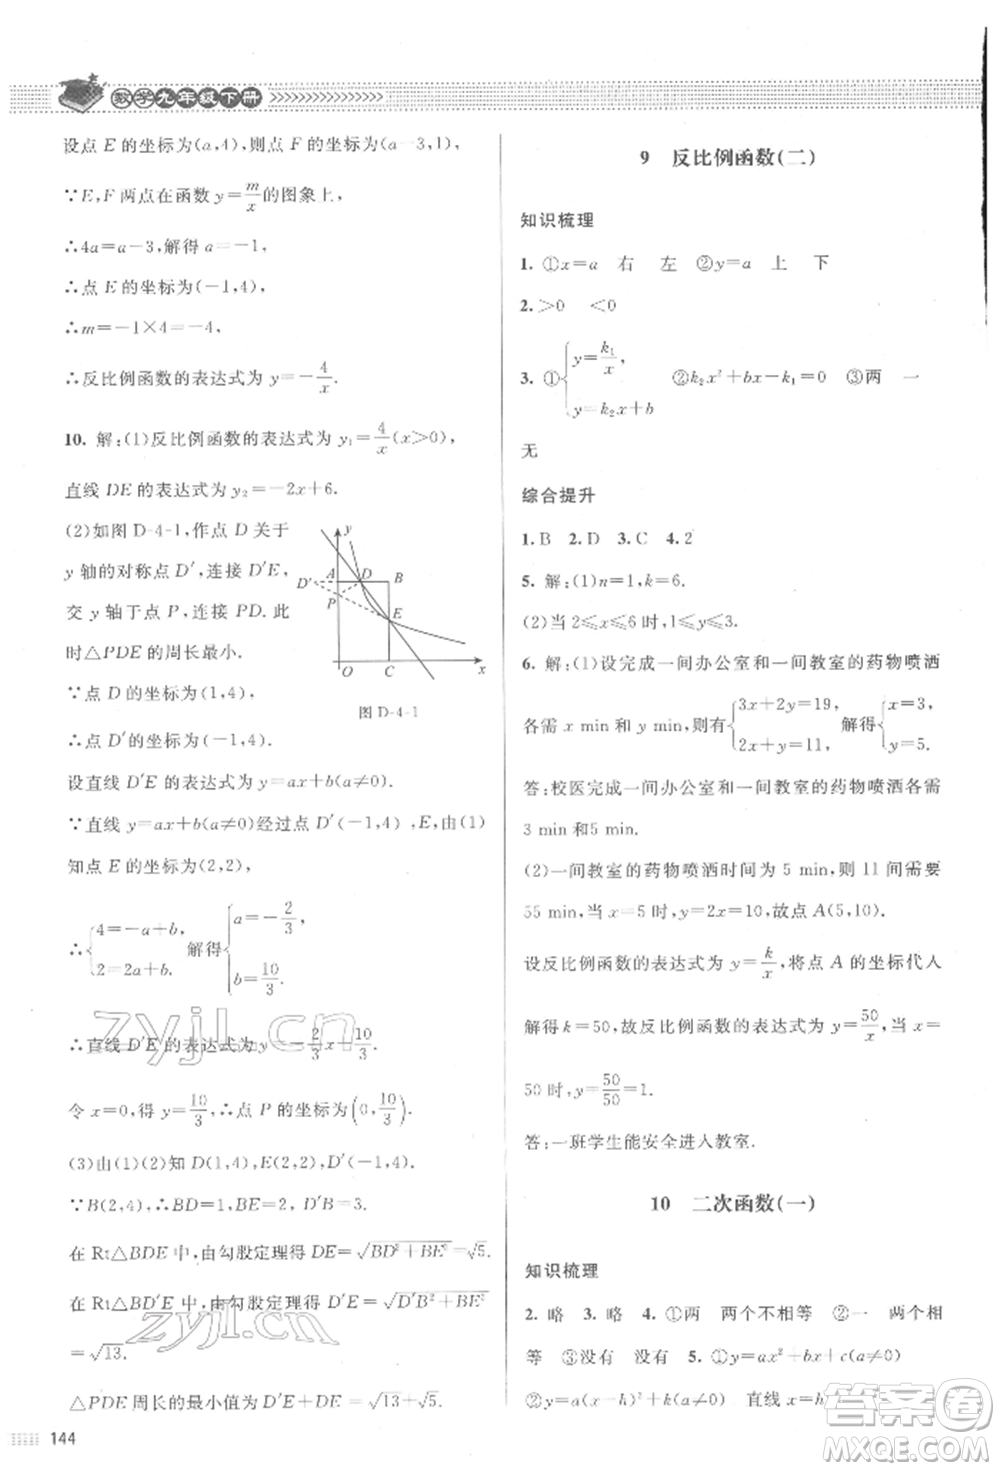 数学九年级下册
设点 E 的坐标为(a,4),则点 F 的坐标为(a-3,1),
∵E,F 两点在函数 y=m/x的图象上,
∴4a=a-3,解得 a=-1,
∴点 E 的坐标为(-1,4),
∴m=-1×4=-4,
∴反比例函数的表达式为 y=-4/x.
10. 解:(1)反比例函数的表达式为 y₁=4/x(x>0),
直线 DE 的表达式为 y₂=-2x+6.
(2)如图 D-4-1,作点 D 关于
y 轴的对称点 D′,连接 D′E
交 y 轴于点 P,连接 PD. 此
时△PDE 的周长最小.
∵点 D 的坐标为(1,4),
y
D′ A D B
P
E
O C x
图 D-4-1
∴点 D′的坐标为(-1,4).
设直线 D′E 的表达式为 y=ax+b(a≠0).
∵直线 y=ax+b(a≠0)经过点 D′(-1,4),E,由(1)
知点 E 的坐标为(2,2),
∴{4=-a+b, 2=2a+b. 解得{a=-2/3, b=10/3.
∴直线 D′E 的表达式为 y=-2/3x+10/3.
令 x=0,得 y=10/3,∴点 P 的坐标为(0,10/3).
(3)由(1)(2)知 D(1,4),E(2,2),D′(-1,4).
∵B(2,4),∴BD=1,BE=2,D′B=3.
在 Rt△BDE 中,由勾股定理得 DE=√(BD²+BE²)=√5.
在 Rt△BD′E 中,由勾股定理得 D′E=√(D′B²+BE²)
=√13.
△PDE 周长的最小值为 D′E+DE=√13+√5.
144
9 反比例函数(二)
知识梳理
1. ①x=a 右 左 ②y=a 上 下
2. >0 <0
3. ①{y=k₁/x, y=k₂x+b ②k₂x²+bx-k₁=0 ③两 一
无
综合提升
1. B 2. D 3. C 4. 2
5. 解:(1)n=1,k=6.
(2)当 2≤x≤6 时,1≤y≤3.
6. 解:(1)设完成一间办公室和一间教室的药物喷洒
各需 x min 和 y min,则有{3x+2y=19, 2x+y=11. 解得{x=3, y=5.
答:校医完成一间办公室和一间教室的药物喷洒各需
3 min 和5 min.
(2)一间教室的药物喷洒时间为 5 min,则 11 间需要
55 min,当 x=5 时,y=2x=10,故点 A(5,10).
设反比例函数的表达式为 y=k/x,将点 A 的坐标代入
解得 k=50,故反比例函数的表达式为 y=50/x,当 x=
50 时,y=50/50=1.
答:一班学生能安全进入教室.
10 二次函数(一)
知识梳理
2. 略 3. 略 4. ①两 两个不相等 ②一 两个相
等 ③没有 没有 5. ①y=ax²+bx+c(a≠0)
②y=a(x-h)²+k(a≠0) 直线 x=
zyjl.cn
zyjl.cn
答案圈
MXQE.COM